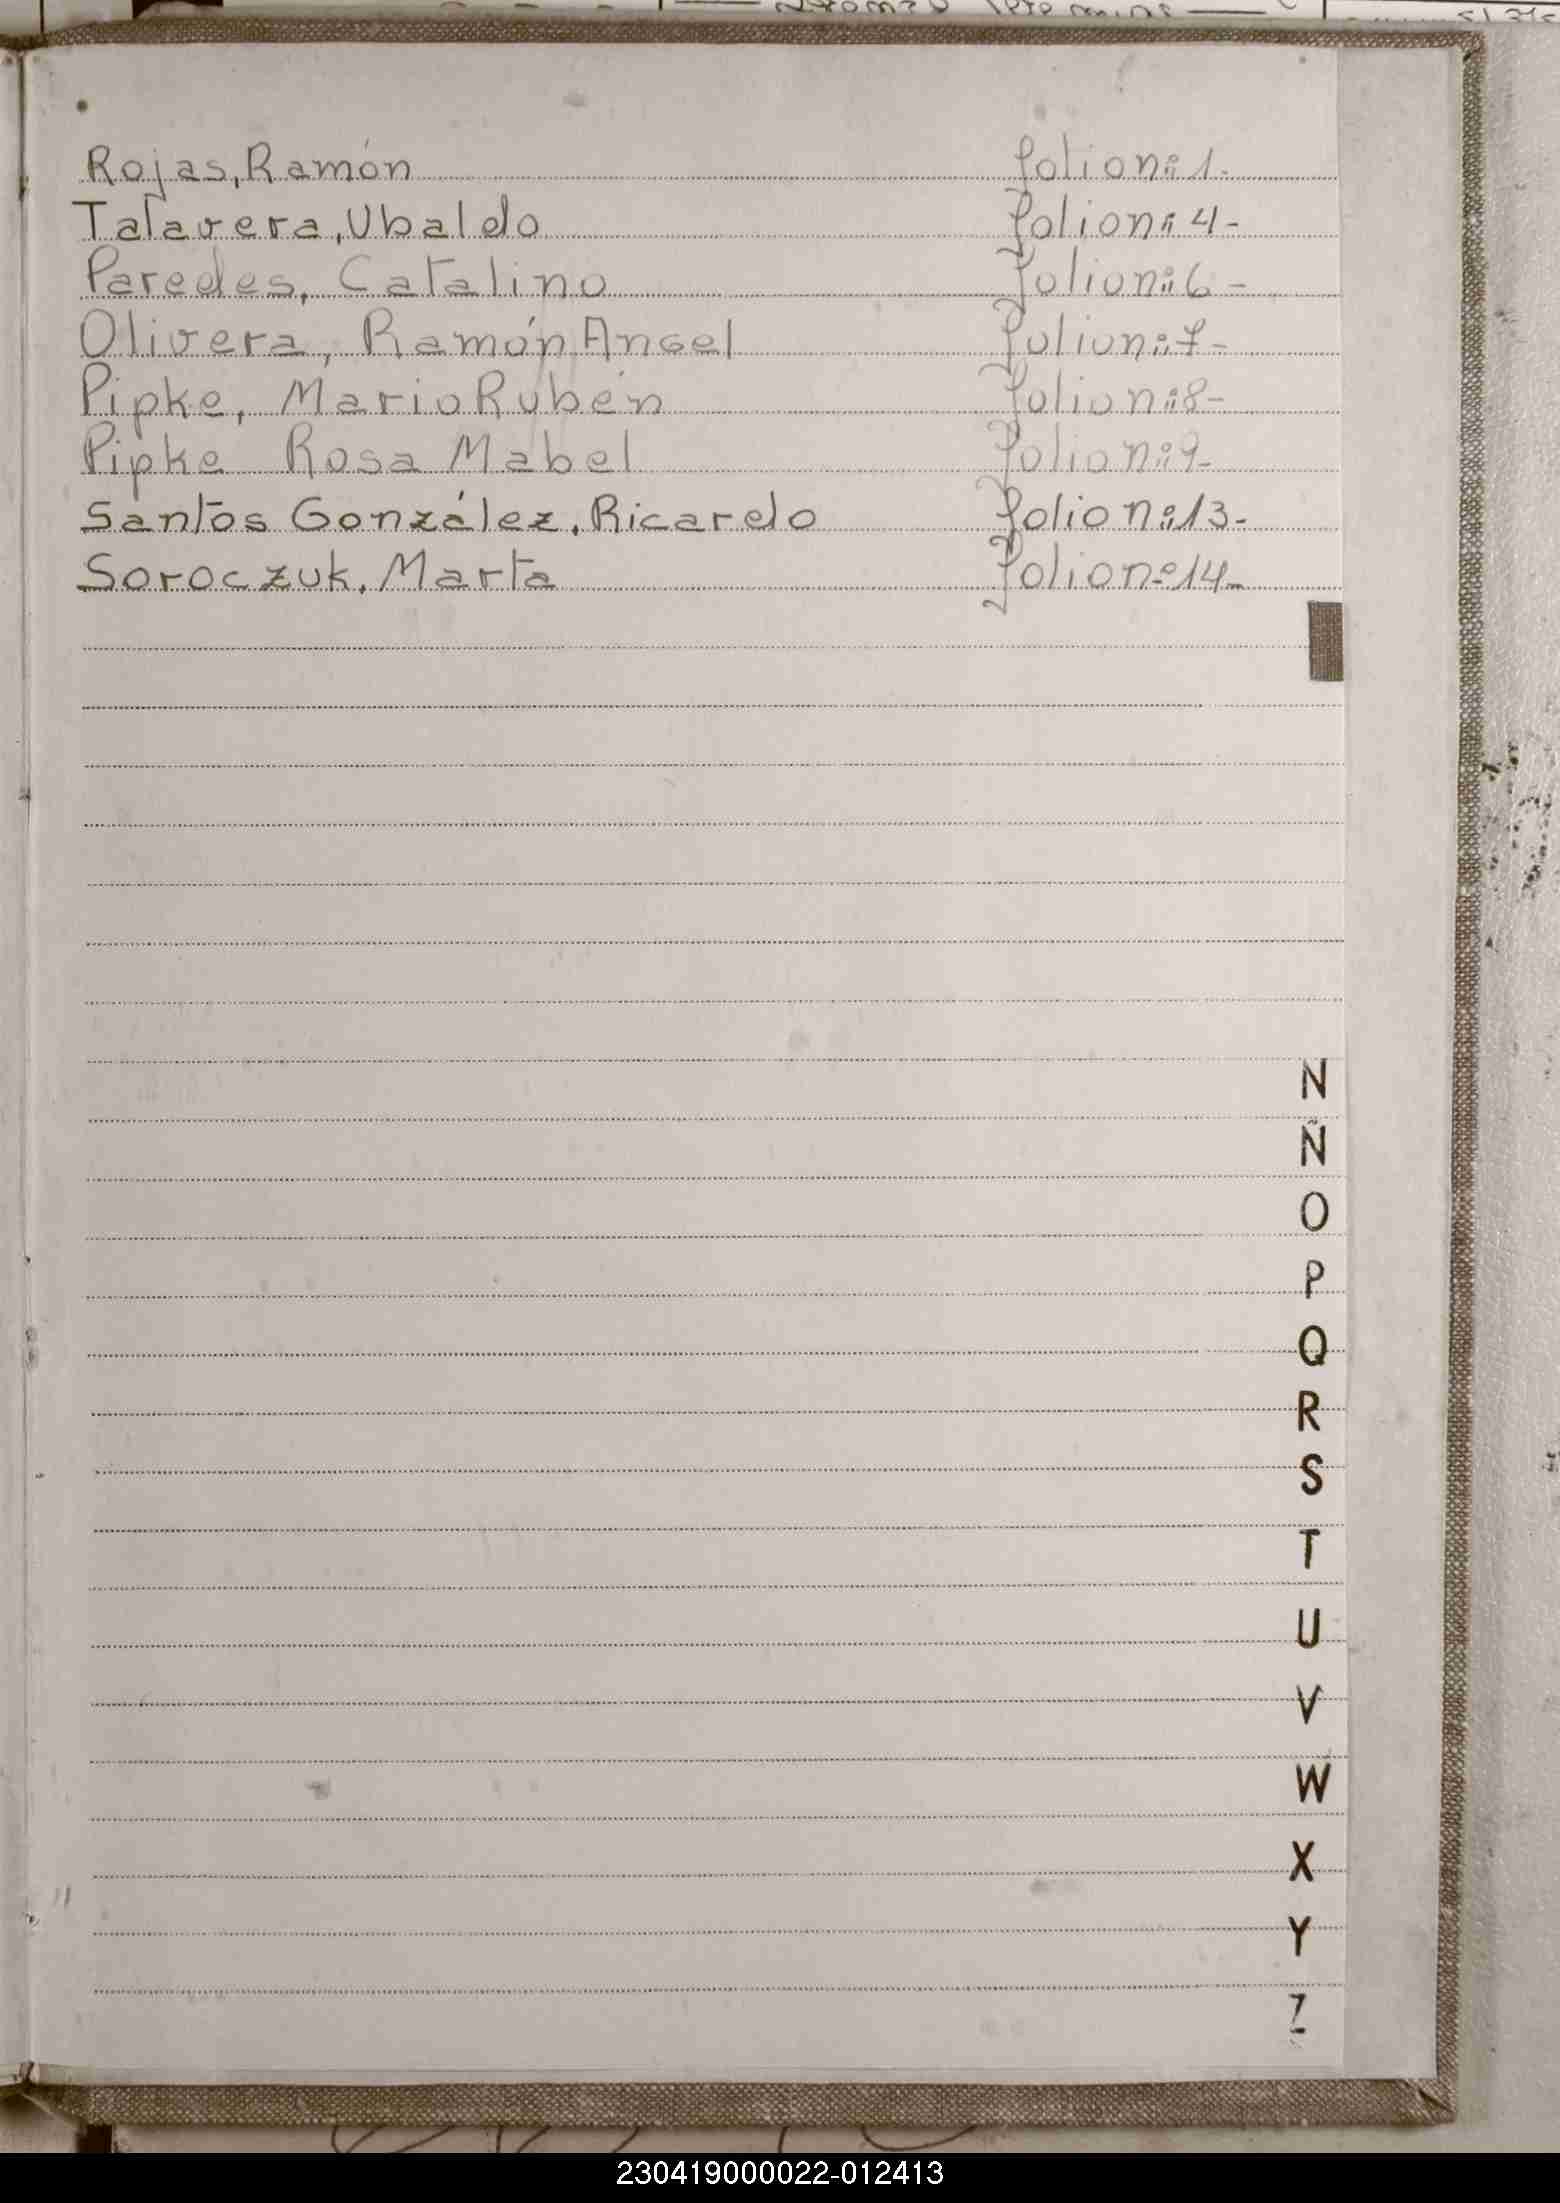 Rojas, Ramón folio nº 1.
Talavera, Ubaldo folio nº 4-
Paredes, Catalino folio nº 6-
Olivera, Ramón Angel folio nº 7-
Pipke, Mario Rubén folio nº 8-
Pipke Rosa Mabel folio nº 9-
Santos González, Ricardo folio nº 13-
Soroczuk, Marta folio nº 14-
N
Ñ
O
P
Q
R
S
T
U
V
W
X
Y
Z
230419000022-012413